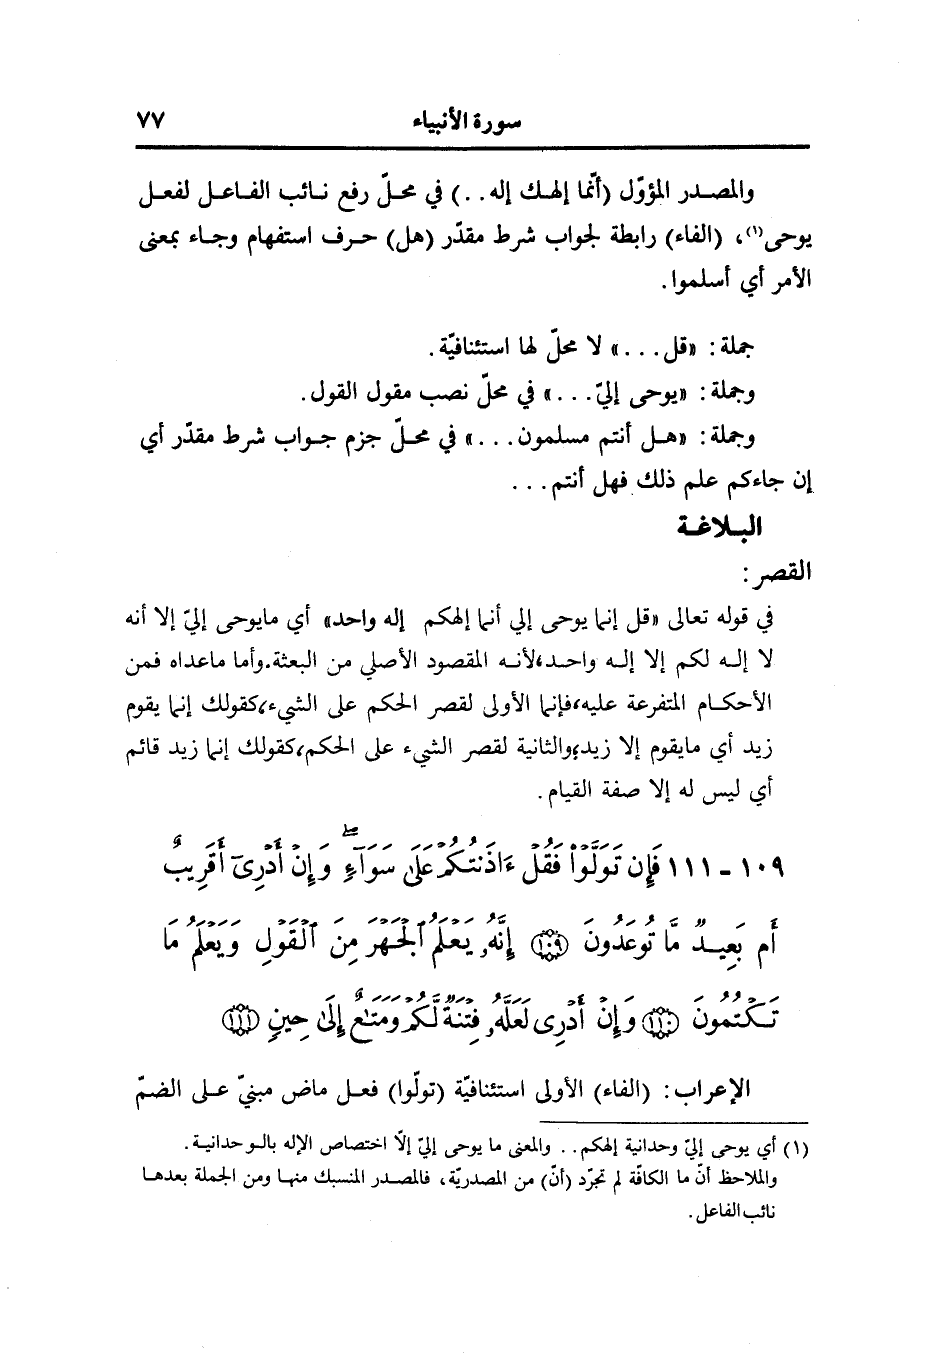 سورة الأنبياء ٧٧
والمصدر المؤوّل (أنّما إلهك إله . . ) في محلّ رفع نائب الفاعل لفعل
يوحى(١)، (الفاء) رابطة لجواب شرط مقدّر (هل) حرف استفهام وجاء بمعنى
الأمر أي أسلموا .
جملة : «قل . . . » لا محلّ لها استئنافيّة .
وجملة : «يوحى إليّ . . . » في محلّ نصب مقول القول .
وجملة : «هل أنتم مسلمون . . . » في محلّ جزم جواب شرط مقدّر أي
إن جاءكم علم ذلك فهل أنتم . . .
البلاغة
القصر :
في قوله تعالى «قل إنما يوحى إلي أنما إلهكم إله واحد» أي مايوحى إليّ إلا أنه
لا إله لكم إلا إله واحد، لأنه المقصود الأصلي من البعثة. وأما ماعداه فمن
الأحكام المتفرعة عليه، فإنما الأولى لقصر الحكم على الشيء، كقولك إنما يقوم
زيد أي مايقوم إلا زيد؛ والثانية لقصر الشيء على الحكم، كقولك إنما زيد قائم
أي ليس له إلا صفة القيام .
١٠٩ - ١١١ فَإِن تَوَلَّوْاْ فَقُلْ ءَاذَنتُكُمْ عَلَىٰ سَوَآءٍۖ وَإِنْ أَدْرِىٓ أَقَرِيبٌ
أَم بَعِيدٌ مَّا تُوعَدُونَ ١٠٩ إِنَّهُۥ يَعْلَمُ ٱلْجَهْرَ مِنَ ٱلْقَوْلِ وَيَعْلَمُ مَا
تَكْتُمُونَ ١١٠ وَإِنْ أَدْرِى لَعَلَّهُۥ فِتْنَةٌ لَّكُمْ وَمَتَٰعٌ إِلَىٰ حِينٍ ١١١
الإعراب : (الفاء) الأولى استئنافيّة (تولّوا) فعل ماض مبنيّ على الضمّ
(١) أي يوحى إليّ وحدانية إلهكم . . والمعنى ما يوحى إليّ إلّا اختصاص الإله بالوحدانية .
والملاحظ أنّ ما الكافّة لم تجرّد (أنّ) من المصدريّة، فالمصدر المنسبك منها ومن الجملة بعدها
نائب الفاعل .